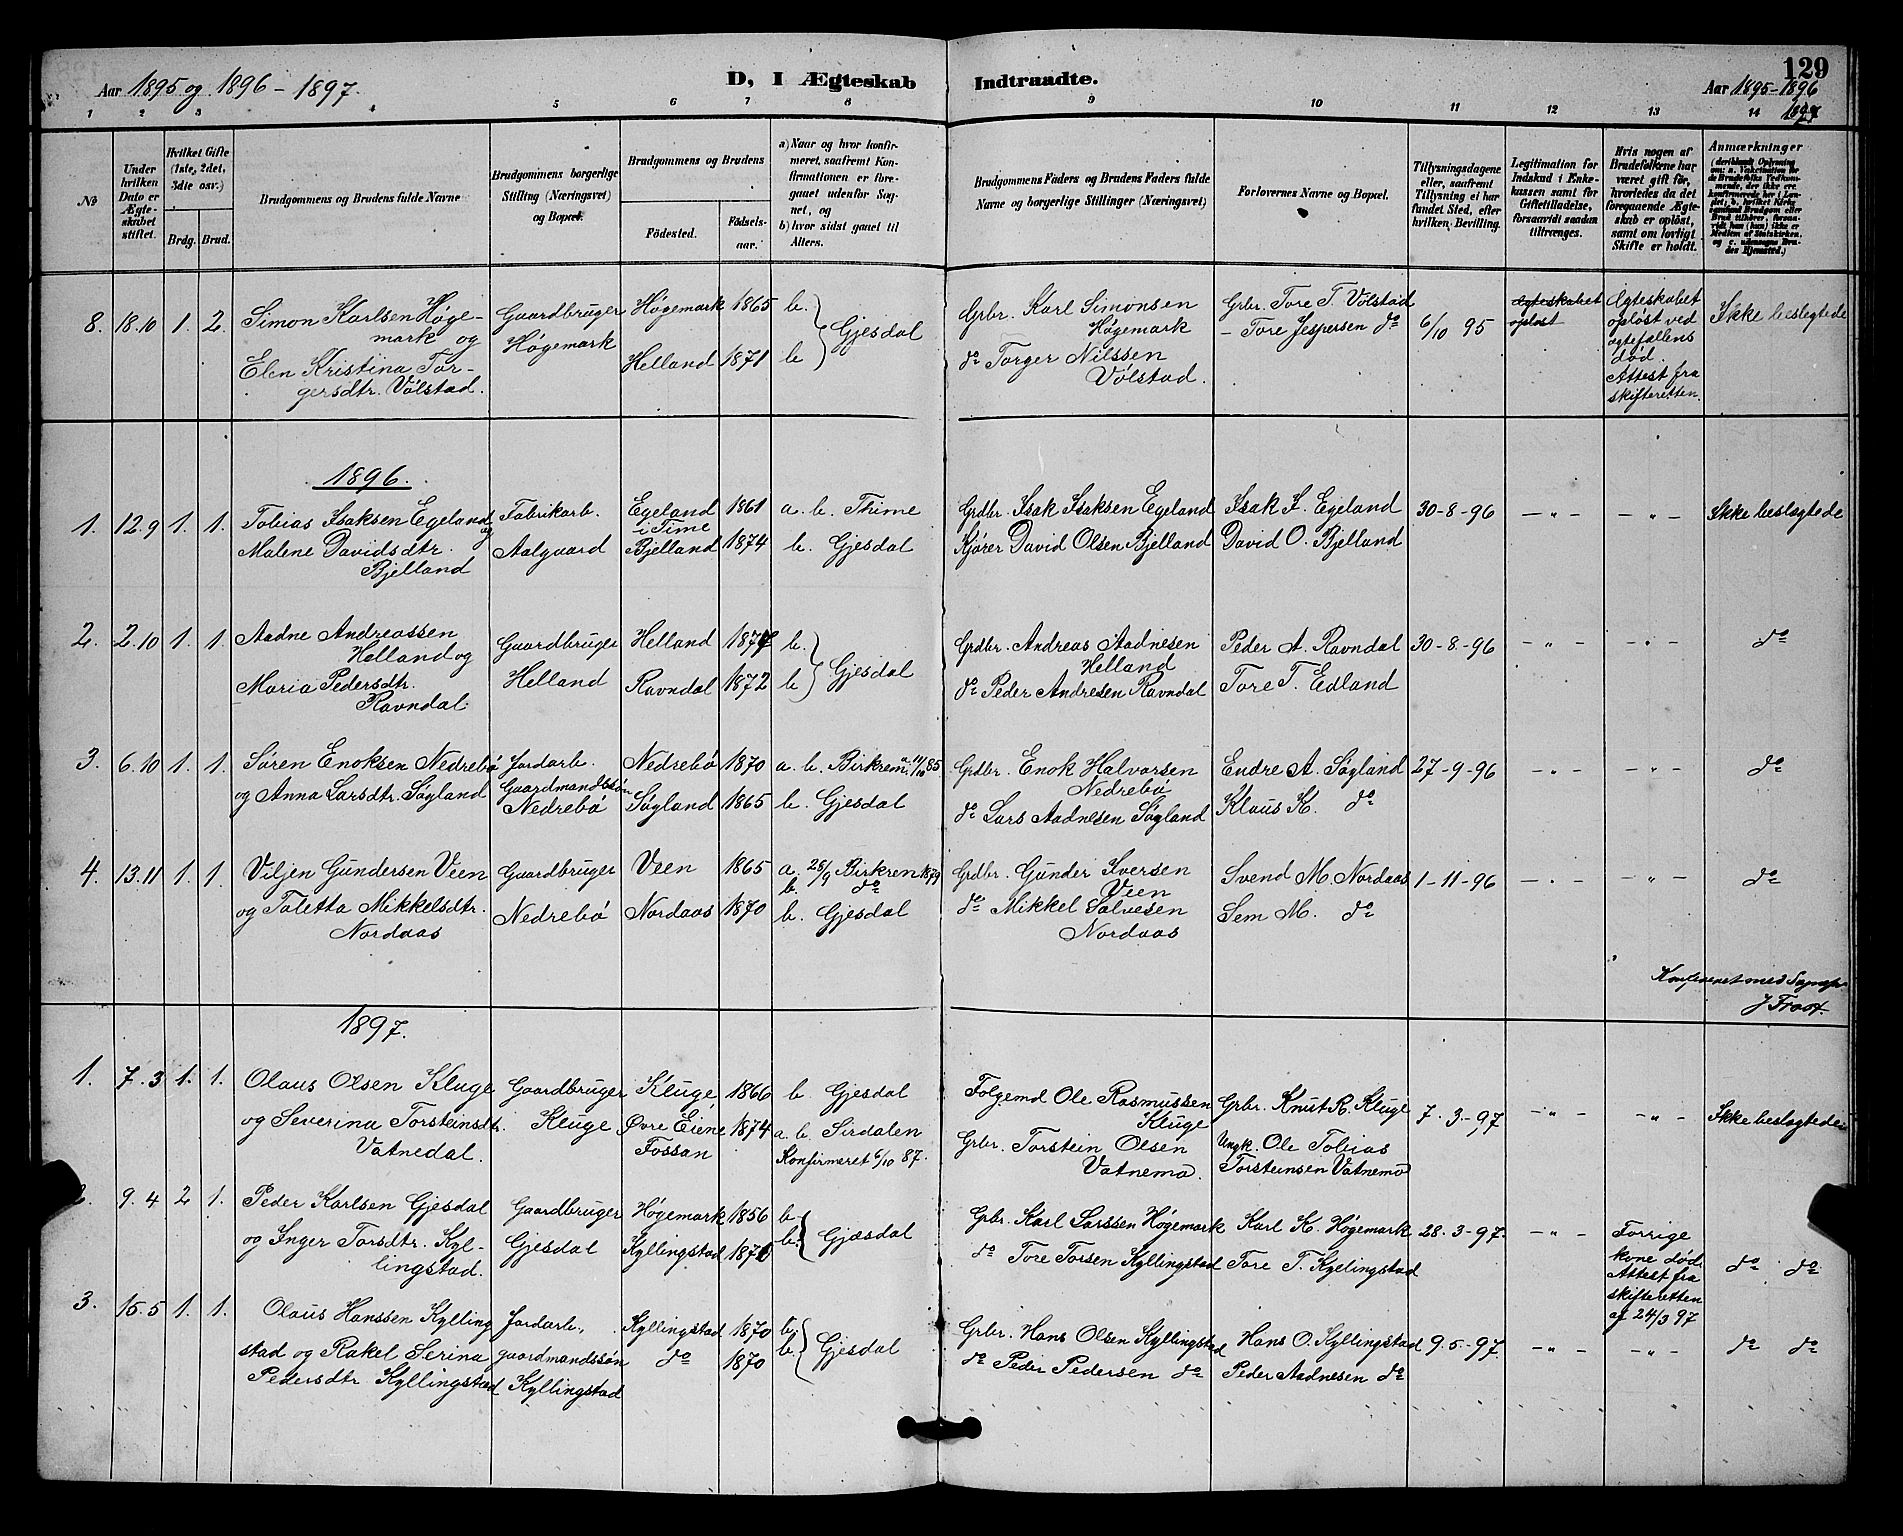 129
Aar 1895 og 1896 - 1897.
D, I Ægteskab Indtraadte.
Aar 1895-1896
1897
1 2 3 4 5 6 7 8 9 10 11 12 13 14
No
Under hvilken Dato er Ægteskabet stiftet.
Hvilket Gifte (1ste, 2det, 3die osv.)
Brdg. Brud.
Brudgommens og Brudens fulde Navne
Brudgommens borgerlige Stilling (Næringsvei) og Bopæl.
Brudgommens og Brudens
Fødested. Fødselsaar.
a) Naar og hvor konfirmeret, saafremt Konfirmationen er foregaaet udenfor Sognet, og
b) hvor sidst gaaet til Alters.
Brudgommens Faders og Brudens Faders fulde Navne og borgerlige Stillinger (Næringsvei)
Forlovernes Navne og Bopæl.
Tillysningsdagene eller, saafremt Tillysning ei har fundet Sted, efter hvilken Bevilling.
Legitimation for Indskud i Enkekassen samt for Giftetilladelse, forsaavidt saadan tiltrænges.
Hvis nogen af Brudefolkene har været gift før, hvorledes da det foregaaende Ægteskab er opløst, samt om lovligt Skifte er holdt.
Anmærkninger
8. 18.10 1. 2. Simon Karlsen Høgemark og
Elen Kristina Torgersdtr. Vølstad.
Gaardbruger
Høgemark
Høgemark 1865 b.
Helland 1871 b.
Gjesdal
Grbr. Karl Simonsen
Høgemark
do Torger Nilssen
Vølstad.
Grbr. Tore T. Vølstad
- Tore Jespersen do
6/10 95
Ægteskabet
opløst
Ægteskabet
opløst ved
ægtefællens
død.
Attest fra
skifteretten.
Ikke beslegtede
1896.
1. 12.9 1. 1. Tobias Isaksen Egeland og
Malene Davidsdtr.
Bjelland
Fabrikarb.
Aalgaard
Egeland
i Time 1861 a. b. Thime
Bjelland 1874 b. Gjesdal
Grdbr. Isak Isaksen Egeland
Kjører David Olsen Bjelland
Isak I. Egeland
David O. Bjelland
30-8-96 - " - - " - Ikke beslægtede
2. 2.10 1. 1. Aadne Andreassen
Helland og
Maria Pedersdtr.
Ravndal.
Gaardbruger
Helland
Helland 1877 b.
Ravndal 1872 b.
Gjesdal
Grdbr. Andreas Aadnesen
Helland
do Peder Andresen Ravndal
Peder A. Ravndal
Tore T. Edland
30-8-96 - " - - " - do
3. 6.10 1. 1. Søren Enoksen Nedrebø
og Anna Larsdtr. Søgland
Jordarb.
Gaardmandssøn
Nedrebø
Nedrebø 1870 a. b. Birkrem a. 11/10 85
Søgland 1865 b. Gjesdal
Grdbr. Enok Halvorsen
Nedrebø
do Lars Aadnesen Søgland
Endre A. Søgland
Klaus K. do
27-9-96 - " - - " - do
4. 13.11 1. 1. Viljen Gundersen Veen
og Taletta Mikkelsdtr.
Nordaas
Gaardbruger
Nedrebø
Veen 1865 a. 28/9 Birkrem 1879
b. do
Nordaas 1870 b. Gjesdal
Grdbr. Gunder Iversen
Veen
do Mikkel Salvesen
Nordaas
Svend M. Nordaas
Sem M. do
1-11-96 - " - - " - do
J Frost.
1897.
1. 7.3 1. 1. Olaus Olsen Kluge
og Severina Torsteinsdtr.
Vatnedal.
Gaardbruger
Kluge
Kluge 1866 b Gjesdal
Øvre Eiene 1874 a. b. Sirdalen
Fossan Konfirmeret 6/10 87.
Følgemd Ole Rasmussen
Kluge
Grbr. Torstein Olsen
Vatnemo.
Grbr. Knut R. Kluge
Ungk. Ole Tobias
Torsteinsen Vatnemo
7.3-97 - " - - " - Ikke beslægtede
9.4 2 1. Peder Karlsen Gjesdal
og Inger Torsdtr. Kyllingstad.
Gaardbruger
Gjesdal
Høgemark 1856 b
Kyllingstad 1870 b.
Gjesdal
Grbr. Karl Larssen Høgemark
do Tore Torsen Kyllingstad
Karl K. Høgemark
Tore T. Kyllingstad
28.3-97. - " - Forrige
kone død.
Attest fra
skifteretten
af 24/3 97
do do
3. 15.5 1. 1. Olaus Hanssen Kylling
stad og Rakel Serina
Pedersdtr Kyllingstad
Jordarb.,
gaardmandssøn
Kyllingstad
Kyllingstad 1870 b.
do 1870 b.
Gjesdal
Grbr. Hans Olsen Kyllingstad
do Peder Pedersen do
Hans O. Kyllingstad
Peder Aadnesen do
9.5-97. - " - - " - do do